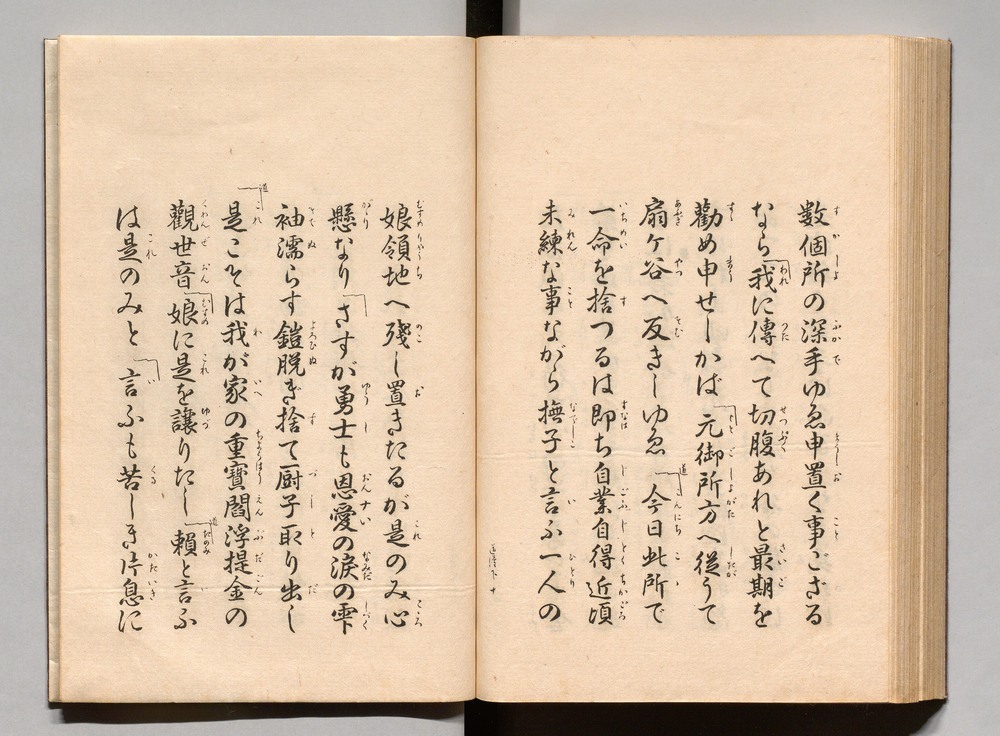 数個所の深手ゆゑ申置く事ござる
なら「我に傳へて切腹あれと最期を
勸め申せしかば「元御所方へ従うて
扇ケ谷へ反きしゆゑ「今日此所で
一命を捨つるは即ち自業自得近頃
未練な事ながら撫子と言ふ一人の
娘領地へ殘し置きたるが是のみ心
懸なり「さすが勇士も恩愛の涙の雫
袖濡らす鎧脱ぎ捨て厨子取り出し
是こそは我が家の重寶閻浮提金の
觀世音「娘に是を讓りたし「頼と言ふ
は是のみと「言ふも苦しき片息に